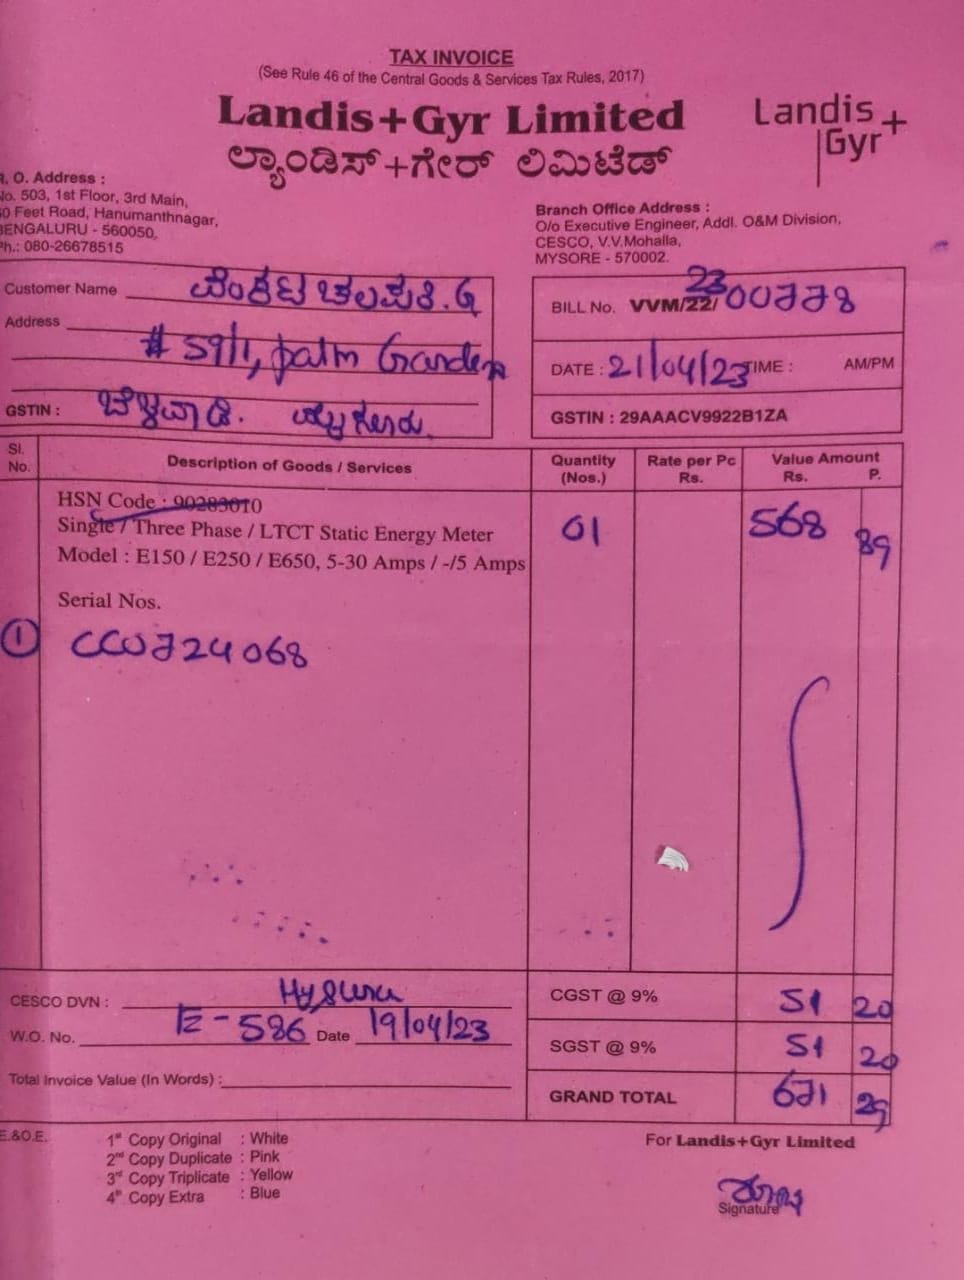 TAX INVOICE
(See Rule 46 of the Central Goods & Services Tax Rules, 2017)
Landis+Gyr Limited
ಲ್ಯಾಂಡಿಸ್+ಗೇರ್ ಲಿಮಿಟೆಡ್
Landis+
Gyr
R. O. Address :
No. 503, 1st Floor, 3rd Main,
80 Feet Road, Hanumanthnagar,
BENGALURU - 560050,
Ph.: 080-26678515
Branch Office Address :
O/o Executive Engineer, Addl. O&M Division,
CESCO, V.V.Mohalla,
MYSORE - 570002.
Customer Name ವೆಂಕಟ ಚಲಪತಿ.G
Address
# 59/1, palm Garden
GSTIN :
BILL No. VVM/22/ 23 00778
DATE : 21/04/23 TIME : AM/PM
GSTIN : 29AAACV9922B1ZA
Sl. No. Description of Goods / Services Quantity (Nos.) Rate per Pc Rs. Value Amount Rs. P.
HSN Code : 90283010
Single / Three Phase / LTCT Static Energy Meter 01 568 89
Model : E150 / E250 / E650, 5-30 Amps / -/5 Amps
Serial Nos.
1 CCW724068
CESCO DVN : Mysuru
W.O. No. E-586 Date 19/04/23
Total Invoice Value (In Words) :
CGST @ 9% 51 20
SGST @ 9% 51 20
GRAND TOTAL 671 29
E.&O.E.
1st Copy Original : White
2nd Copy Duplicate : Pink
3rd Copy Triplicate : Yellow
4th Copy Extra : Blue
For Landis+Gyr Limited
Signature